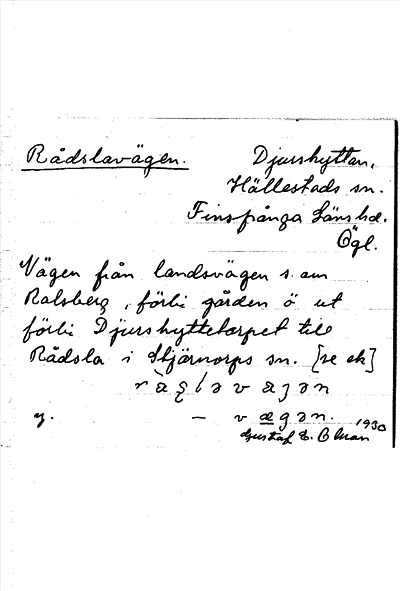 Rådslavägen.
Djurshyttan,
Hällestads sn.
Finspånga Länshd.
Ögl.
Vägen från landsvägen s. om
Ralsberg, förbi gården ö ut
förbi Djurshyttetorpet till
Rådsla i Stjärnorps sn. [se ek]
y.
– vægən.
1930
Gustaf E. Elman